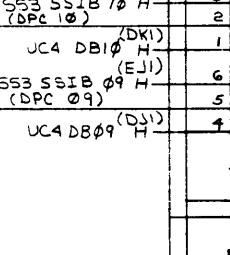 553 SSIB 1φ H
(DPC 1φ) 2
(DK1)
UC4 DB1φ H 1
(EJ1)
553 SSIB φ9 H 6
(DPC φ9) 5
(DJ1)
UC4 DBφ9 H 4